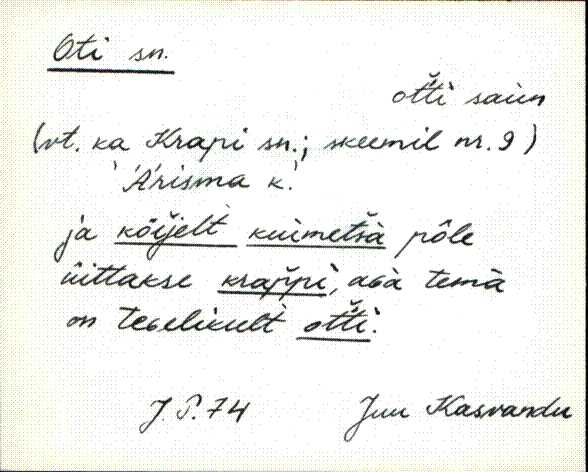 Oti sn.
ot̆ti saun
(vt. ka Krapi sn.; skeemil nr. 9)
'Ärisma k.'
ja kõijelt kuimetsä põle
üittakse krap̆pi, aga temä
on tegelikult ot̆ti.
J. P. 74 Juu Kasvandu